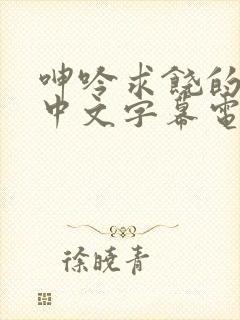 呻吟求饶的
中文字幕電
徐曉青